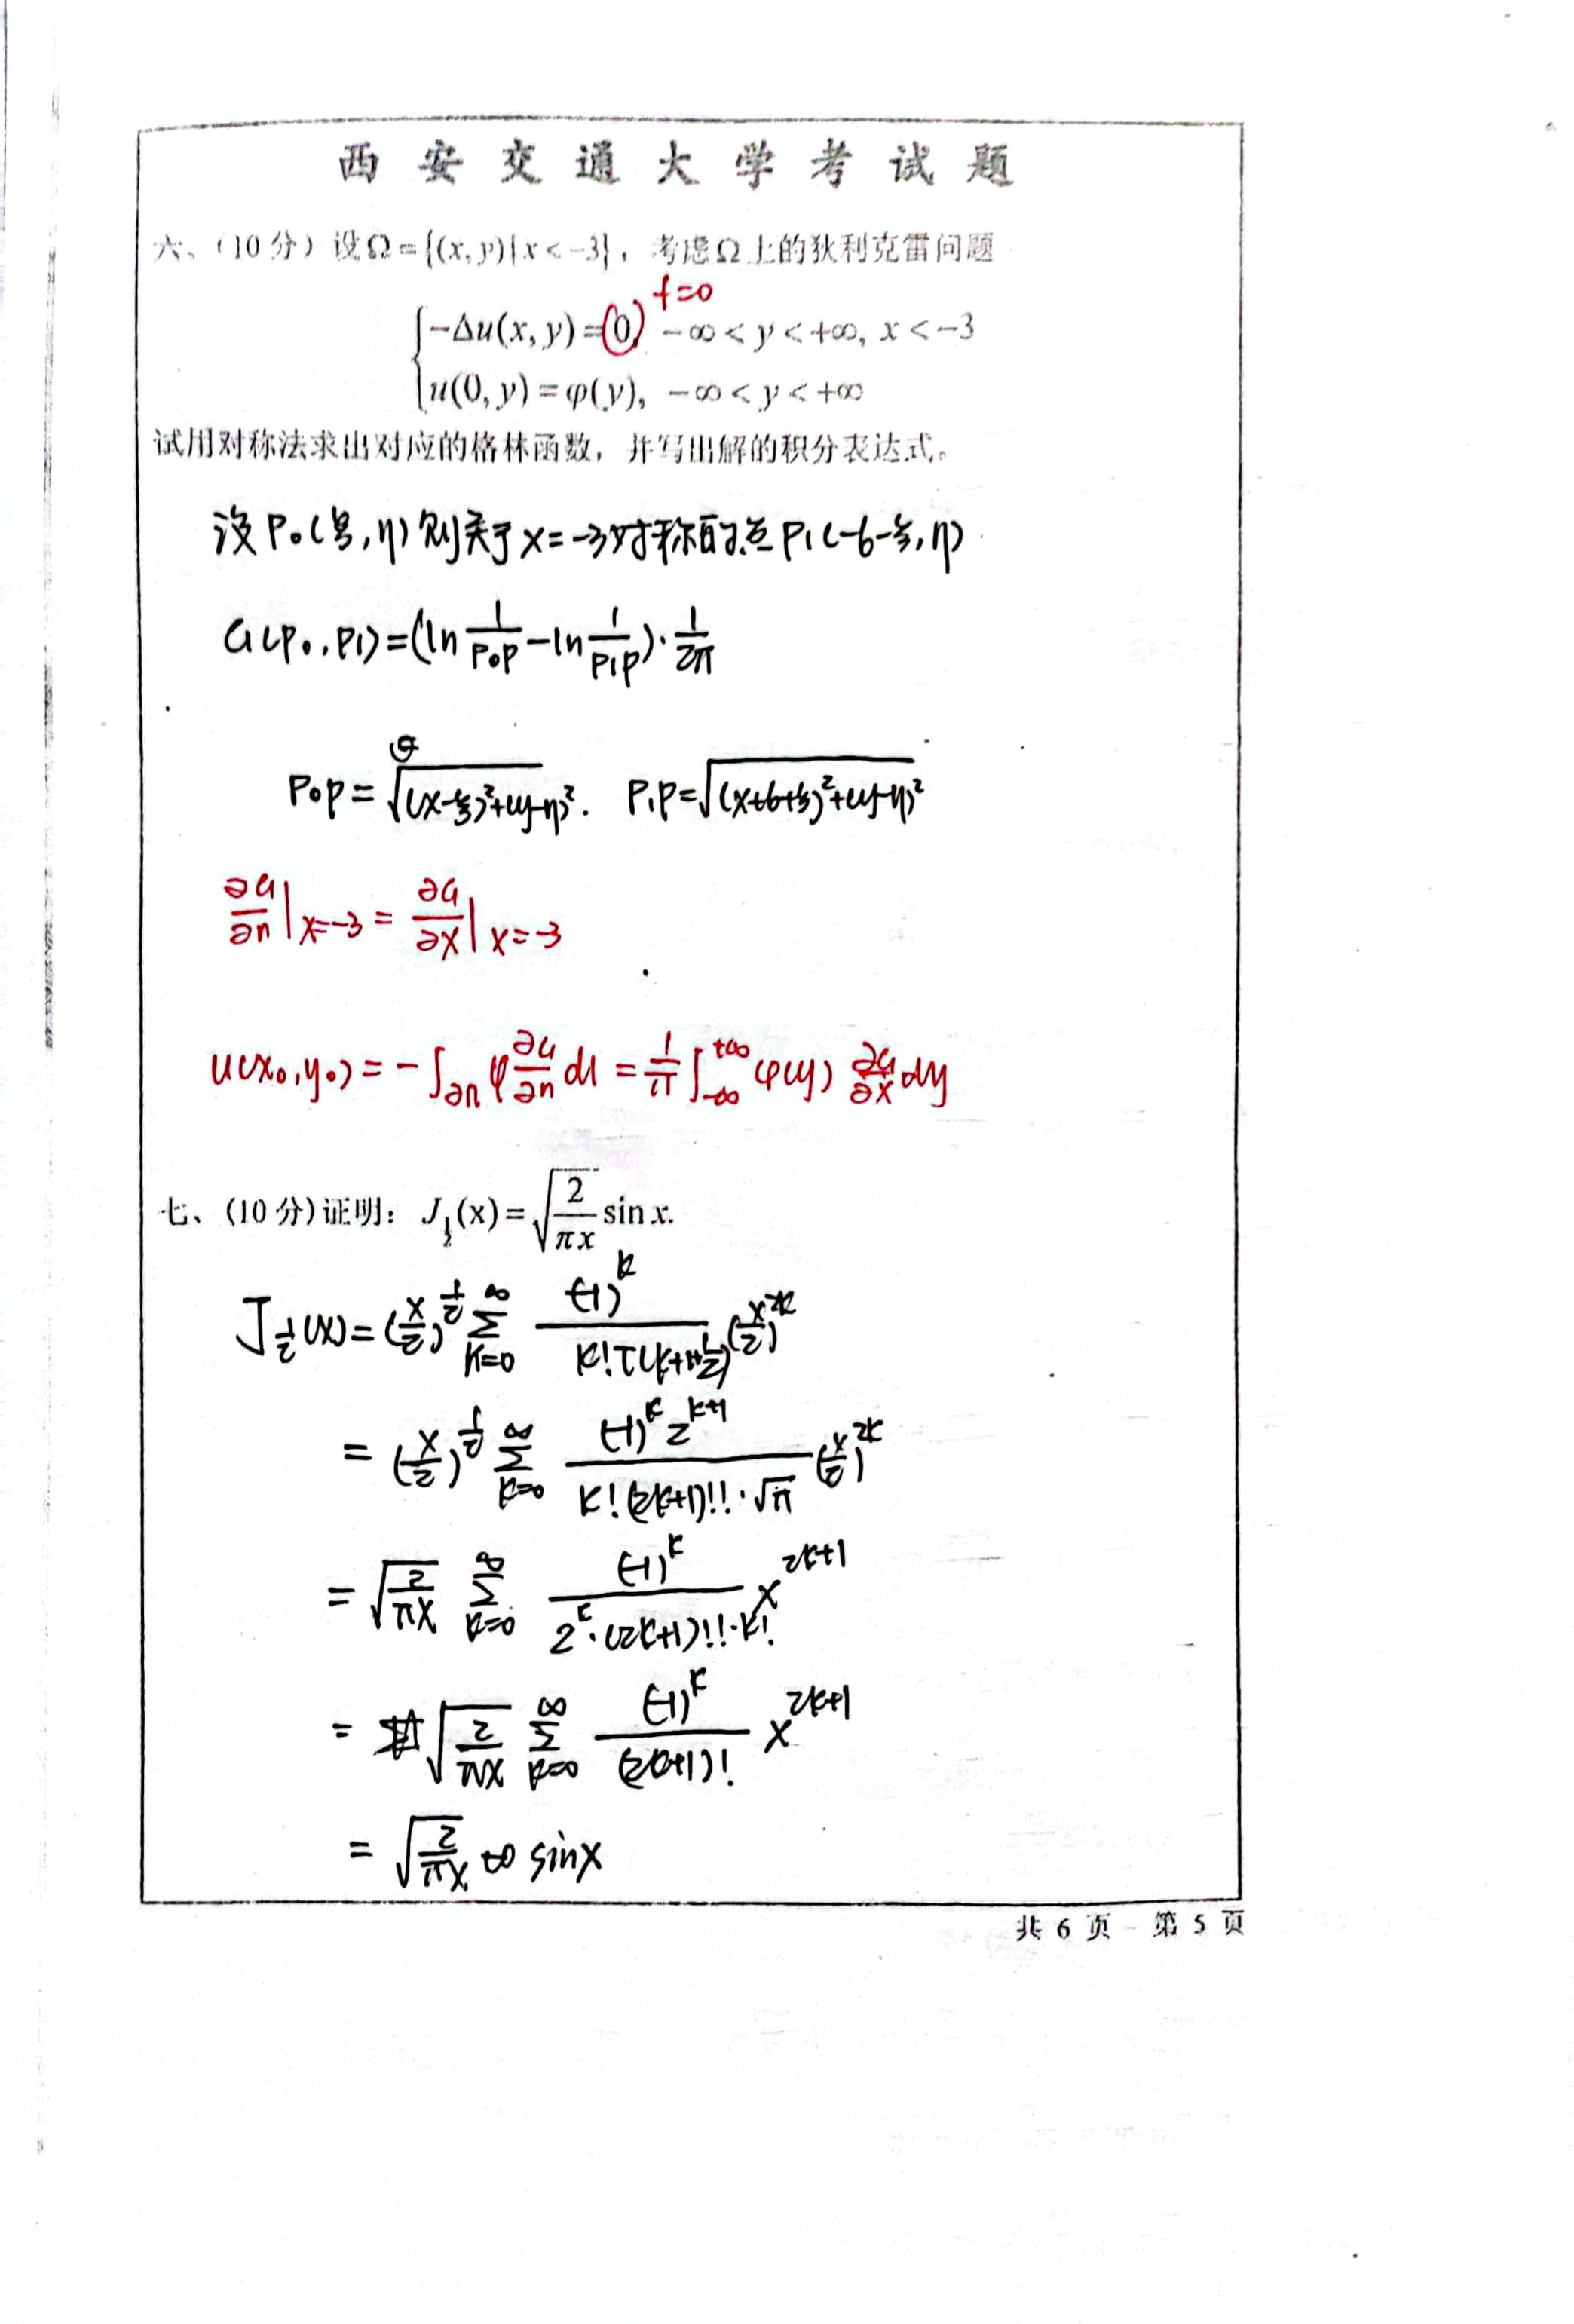 西安交通大学考试题
六、（10分）设Ω={(x,y)|x<-3}，考虑Ω上的狄利克雷问题
f=0
{ -Δu(x,y)=0, -∞<y<+∞, x<-3
u(0,y)=φ(y), -∞<y<+∞
试用对称法求出对应的格林函数，并写出解的积分表达式。
设P₀(ξ,η)则关于x=-3对称的点P₁(-6-ξ,η)
G(P₀,P₁)=(ln 1/P₀P - ln 1/P₁P)·1/2π
P₀P=√((x-ξ)²+(y-η)². P₁P=√((x+6+ξ)²+(y-η)²
∂G/∂n|x=-3 = ∂G/∂x|x=-3
u(x₀,y₀)=-∫∂Ω φ ∂G/∂n dl = 1/π ∫_{-∞}^{+∞} φ(y) ∂G/∂x dy
七、(10分)证明：J_{1/2}(x)=√(2/πx) sin x.
J_{1/2}(x)=(x/2)^{1/2} Σ_{k=0}^{∞} (-1)^k / k!Γ(k+1+1/2) (x/2)^{2k}
= (x/2)^{1/2} Σ_{k=0}^{∞} (-1)^k 2^{k+1} / k!(2k+1)!!·√π (x/2)^{2k}
= √(2/πx) Σ_{k=0}^{∞} (-1)^k / 2^k·(2k+1)!!·k! x^{2k+1}
= √(2/πx) Σ_{k=0}^{∞} (-1)^k / (2k+1)! x^{2k+1}
= √(2/πx) sinx
共 6 页 第 5 页